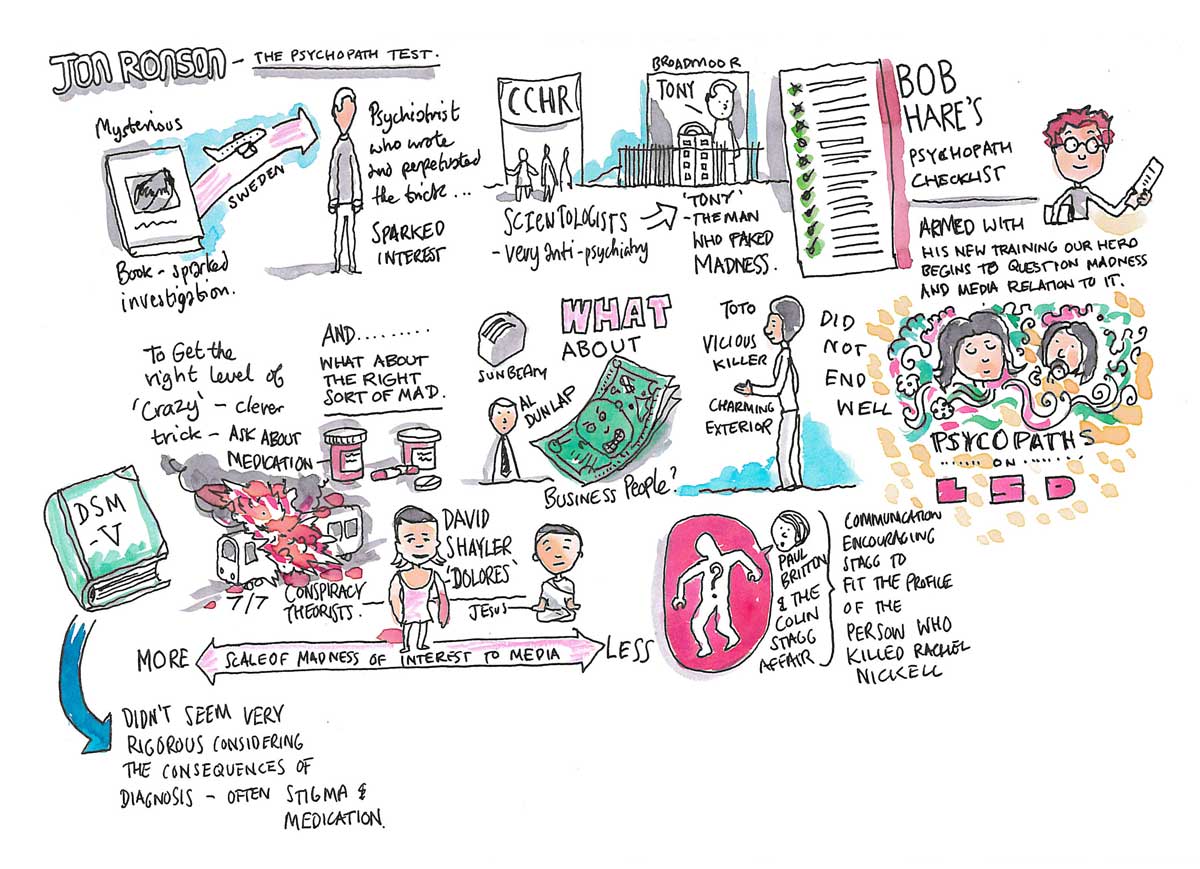 JON RONSON – THE PSYCHOPATH TEST.
Mysterious
SWEDEN
Book – sparked
investigation.
Psychiatrist
who wrote
and perpetuated
the trick ...
SPARKED
INTEREST
CCHR
SCIENTOLOGISTS
- Very anti-psychiatry
BROADMOOR
TONY
'TONY'
- THE MAN
WHO FAKED
MADNESS.
BOB
HARE'S
PSYCHOPATH
CHECKLIST
ARMED WITH
HIS NEW TRAINING OUR HERO
BEGINS TO QUESTION MADNESS
AND MEDIA RELATION TO IT.
To Get the
right level of
'Crazy' – clever
trick – ASK ABOUT
MEDICATION
AND........
WHAT ABOUT
THE RIGHT
SORT OF MAD.
SUNBEAM
AL
DUNLAP
WHAT
ABOUT
BUSINESS PEOPLE?
TOTO
VICIOUS
KILLER
CHARMING
EXTERIOR
DID
NOT
END
WELL
PSYCOPATHS
...... ON ......
LSD
DSM
-V
7/7
CONSPIRACY
THEORISTS.
DAVID
SHAYLER
'DOLORES'
JESUS
MORE
SCALE OF MADNESS OF INTEREST TO MEDIA
LESS
?
PAUL
BRITTON
& THE
COLIN
STAGG
AFFAIR
COMMUNICATION
ENCOURAGING
STAGG TO
FIT THE PROFILE
OF THE
PERSON WHO
KILLED RACHEL
NICKELL
DIDN'T SEEM VERY
RIGOROUS CONSIDERING
THE CONSEQUENCES OF
DIAGNOSIS – OFTEN STIGMA &
MEDICATION.